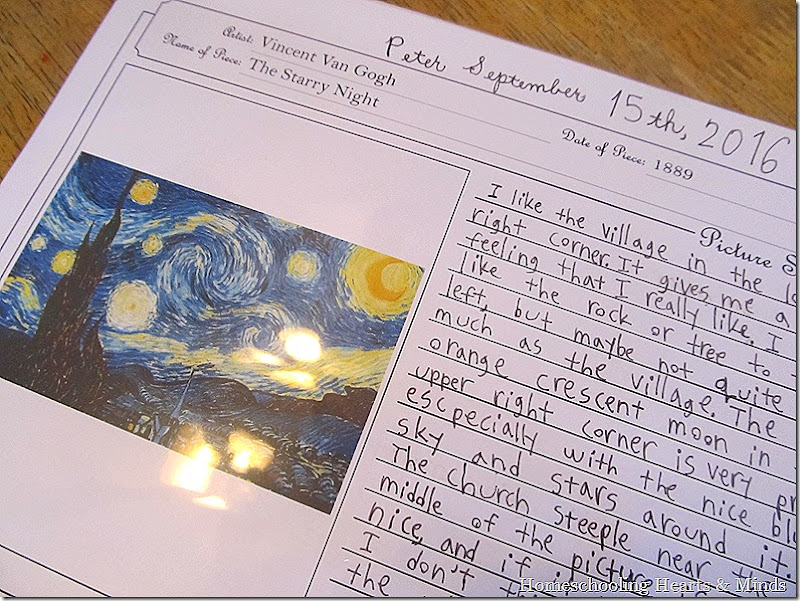 Artist: Vincent Van Gogh
Name of Piece: The Starry Night
Peter September 15th, 2016
Date of Piece: 1889
Picture S
I like the village in the lo
right corner. It gives me a
feeling that I really like. I
like the rock or tree to
left, but maybe not quite
much as the village. The
orange crescent moon in
upper right corner is very pr
escpecially with the nice blu
sky and stars around it.
The church steeple near th
middle of the picture
nice, and if
I don't
the
Homeschooling Hearts & Minds